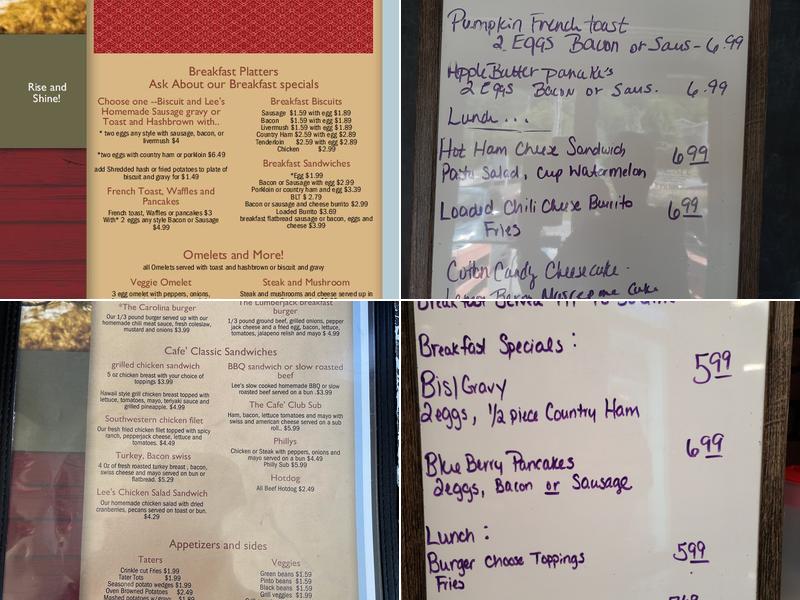 Rise and
Shine!
Breakfast Platters
Ask About our Breakfast specials
Choose one --Biscuit and Lee's
Homemade Sausage gravy or
Toast and Hashbrown with..
* two eggs any style with sausage, bacon, or
livermush $4
*two eggs with country ham or porkloin $6.49
add Shredded hash or fried potatoes to plate of
biscuit and gravy for $1.49
French Toast, Waffles and
Pancakes
French toast, Waffles or pancakes $3
With* 2 eggs any style Bacon or Sausage
$4.99
Breakfast Biscuits
Sausage $1.59 with egg $1.89
Bacon $1.59 with egg $1.89
Livermush $1.59 with egg $1.89
Country Ham $2.59 with egg $2.89
Tenderloin $2.59 with egg $2.89
Chicken $2.99
Breakfast Sandwiches
*Egg $1.99
Bacon or Sausage with egg $2.99
Porkloin or country ham and egg $3.39
BLT $ 2.79
Bacon or sausage and cheese burrito $2.99
Loaded Burrito $3.69
breakfast flatbread sausage or bacon, eggs and
cheese $3.99
Omelets and More!
all Omelets served with toast and hashbrown or biscuit and gravy
Veggie Omelet
3 egg omelet with peppers, onions,
Steak and Mushroom
Steak and mushrooms and cheese served up in
Pumpkin French toast
2 Eggs Bacon or Saus - 6.99
Apple Butter panake's
2 Eggs Bacon or Saus. 6.99
Lunch...
Hot Ham Cheese Sandwich 6.99
Pasta Salad, Cup Watermelon
Loaded Chili Cheese Burrito 6.99
Fries
Cotton Candy Cheesecake.
*The Carolina burger
Our 1/3 pound burger served up with our
homemade chili meat sauce, fresh coleslaw,
mustard and onions $3.99
The Lumberjack breakfast
burger
1/3 pound ground beef, grilled onions, pepper
jack cheese and a fried egg, bacon, lettuce,
tomatoes, jalapeno relish and mayo $ 4.99
Cafe' Classic Sandwiches
grilled chicken sandwich
5 oz chicken breast with your choice of
toppings $3.99
Hawaii style grill chicken breast topped with
lettuce, tomatoes, mayo, teriyaki sauce and
grilled pineapple. $4.99
Southwestern chicken filet
Our fresh fried chicken filet topped with spicy
ranch, pepperjack cheese, lettuce and
tomatoes.
$4.49
Turkey, Bacon swiss
4 Oz of fresh roasted turkey breast , bacon,
swiss cheese and mayo served on bun or
flatbread. $5.29
Lee's Chicken Salad Sandwich
Our homemade chicken salad with dried
cranberries, pecans served on toast or bun.
$4.29
BBQ sandwich or slow roasted
beef
Lee's slow cooked homemade BBQ or slow
roasted beef served on a bun .$3.99
The Cafe' Club Sub
Ham, bacon, lettuce tomatoes and mayo with
swiss and american cheese served on a sub
roll.. $5.99
Phillys
Chicken or Steak with peppers, onions and
mayo served on a bun $4.49
Philly Sub $5.99
Hotdog
All Beef Hotdog $2.49
Appetizers and sides
Taters
Crinkle cut Fries $1.99
Tater Tots $1.99
Seasoned potato wedges $1.99
Oven Browned Potatoes $2.49
Veggies
Green beans $1.59
Pinto beans $1.59
Black beans $1.59
Grill veggies $1.99
Breakfast Specials :
Bis/Gravy 5.99
2eggs, 1/2 piece Country Ham
Blue Berry Pancakes 6.99
2eggs, Bacon or Sausage
Lunch :
Burger choose Toppings 5.99
Fries